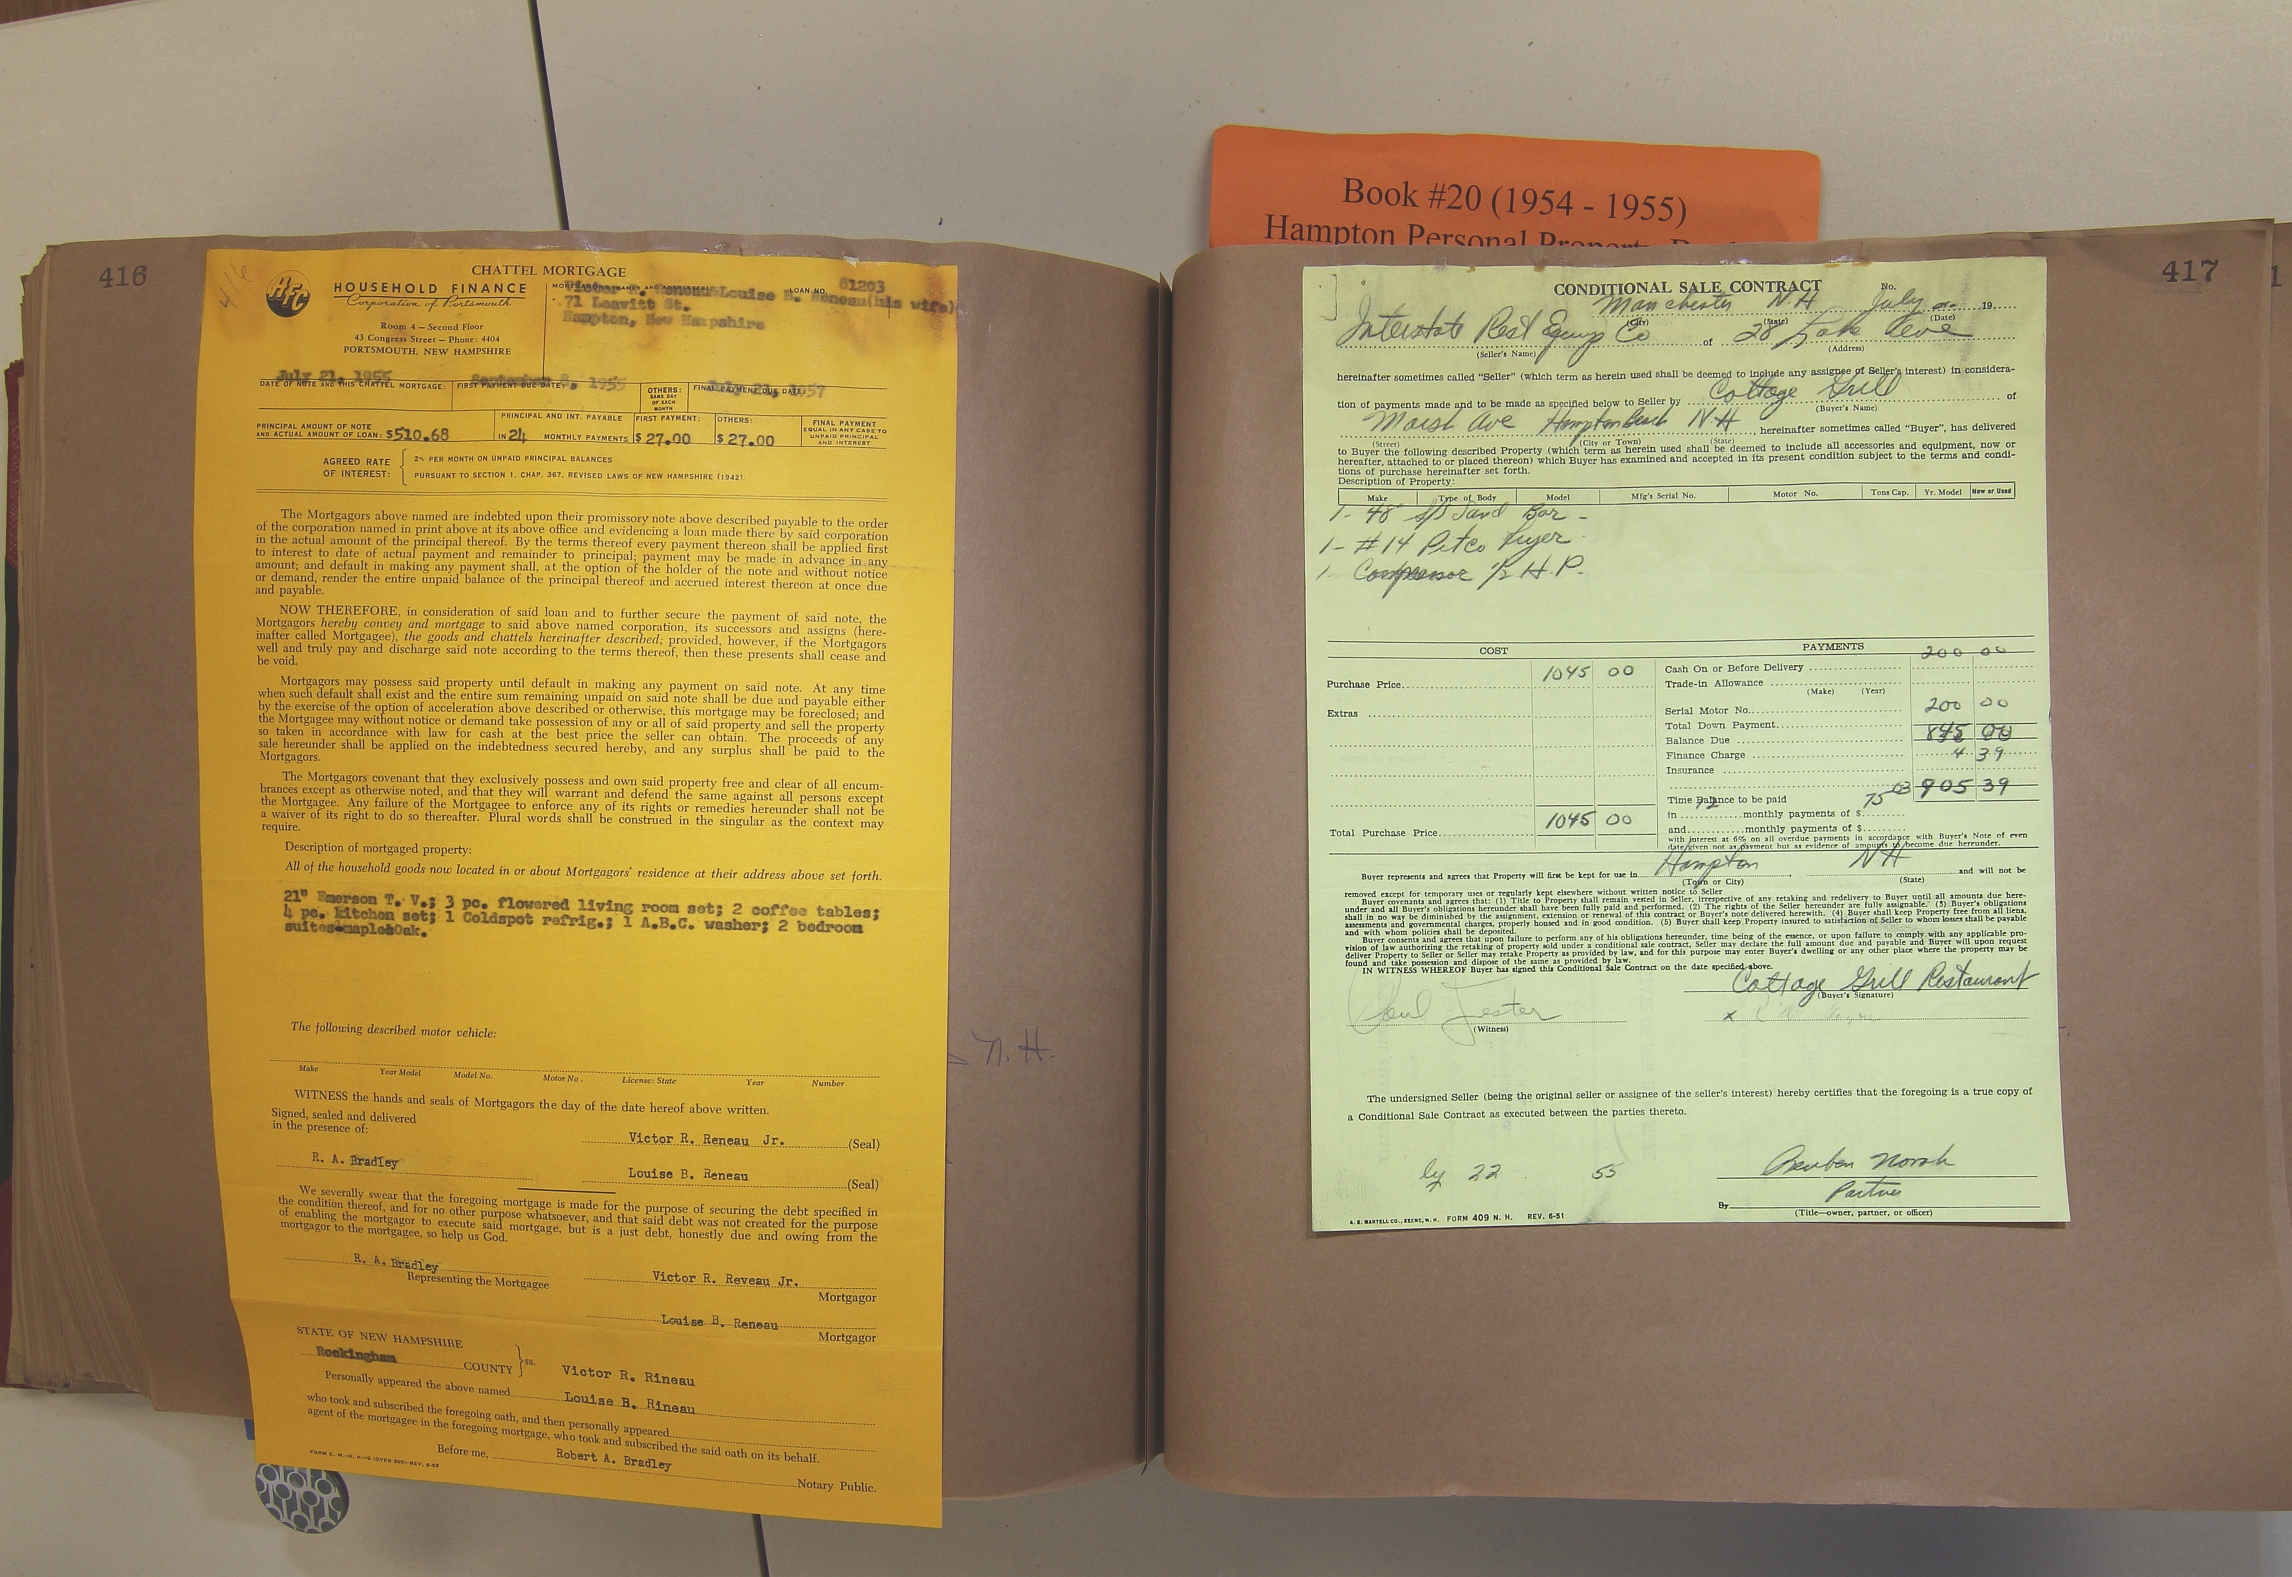 416
416
CHATTEL MORTGAGE
HFC
HOUSEHOLD FINANCE
Corporation of Portsmouth
Room 4 — Second Floor
43 Congress Street — Phone: 4404
PORTSMOUTH, NEW HAMPSHIRE
MORTGAGORS (NAMES AND ADDRESSES):
LOAN NO. 81203
Louise B. Reneau(his wife)
71 Leavitt St.
Hampton, New Hampshire
July 21, 1955 September 8, 1955
DATE OF NOTE AND THIS CHATTEL MORTGAGE: FIRST PAYMENT DUE DATE: OTHERS: SAME DAY OF EACH MONTH FINAL PAYMENT DUE DATE:
PRINCIPAL AMOUNT OF NOTE AND ACTUAL AMOUNT OF LOAN: $510.68
PRINCIPAL AND INT. PAYABLE IN 24 MONTHLY PAYMENTS
FIRST PAYMENT: $ 27.00
OTHERS: $ 27.00
FINAL PAYMENT EQUAL IN ANY CASE TO UNPAID PRINCIPAL AND INTEREST
AGREED RATE OF INTEREST:
2% PER MONTH ON UNPAID PRINCIPAL BALANCES
PURSUANT TO SECTION 1, CHAP. 367, REVISED LAWS OF NEW HAMPSHIRE (1942).
The Mortgagors above named are indebted upon their promissory note above described payable to the order
of the corporation named in print above at its above office and evidencing a loan made there by said corporation
in the actual amount of the principal thereof. By the terms thereof every payment thereon shall be applied first
to interest to date of actual payment and remainder to principal; payment may be made in advance in any
amount; and default in making any payment shall, at the option of the holder of the note and without notice
or demand, render the entire unpaid balance of the principal thereof and accrued interest thereon at once due
and payable.
NOW THEREFORE, in consideration of said loan and to further secure the payment of said note, the
Mortgagors hereby convey and mortgage to said above named corporation, its successors and assigns (here-
inafter called Mortgagee), the goods and chattels hereinafter described; provided, however, if the Mortgagors
well and truly pay and discharge said note according to the terms thereof, then these presents shall cease and
be void.
Mortgagors may possess said property until default in making any payment on said note. At any time
when such default shall exist and the entire sum remaining unpaid on said note shall be due and payable either
by the exercise of the option of acceleration above described or otherwise, this mortgage may be foreclosed; and
the Mortgagee may without notice or demand take possession of any or all of said property and sell the property
so taken in accordance with law for cash at the best price the seller can obtain. The proceeds of any
sale hereunder shall be applied on the indebtedness secured hereby, and any surplus shall be paid to the
Mortgagors.
The Mortgagors covenant that they exclusively possess and own said property free and clear of all encum-
brances except as otherwise noted, and that they will warrant and defend the same against all persons except
the Mortgagee. Any failure of the Mortgagee to enforce any of its rights or remedies hereunder shall not be
a waiver of its right to do so thereafter. Plural words shall be construed in the singular as the context may
require.
Description of mortgaged property:
All of the household goods now located in or about Mortgagors' residence at their address above set forth.
21" Emerson T. V.; 3 pc. flowered living room set; 2 coffee tables;
4 pc. kitchen set; 1 Coldspot refrig.; 1 A.B.C. washer; 2 bedroom
suites-maple&Oak.
The following described motor vehicle:
Make Year Model Model No. Motor No. License: State Year Number
WITNESS the hands and seals of Mortgagors the day of the date hereof above written.
Signed, sealed and delivered
in the presence of:
Victor R. Reneau Jr. (Seal)
R. A. Bradley
Louise B. Reneau (Seal)
We severally swear that the foregoing mortgage is made for the purpose of securing the debt specified in
the condition thereof, and for no other purpose whatsoever, and that said debt was not created for the purpose
of enabling the mortgagor to execute said mortgage, but is a just debt, honestly due and owing from the
mortgagor to the mortgagee, so help us God.
R. A. Bradley
Representing the Mortgagee
Victor R. Reveau Jr.
Mortgagor
Louise B. Reneau
Mortgagor
STATE OF NEW HAMPSHIRE
Rockingham COUNTY } ss.
Victor R. Rineau
Personally appeared the above named Louise B. Rineau
who took and subscribed the foregoing oath, and then personally appeared
agent of the mortgagee in the foregoing mortgage, who took and subscribed the said oath on its behalf.
Before me, Robert A. Bradley
Notary Public.
FORM C. M.-N. H.
N. H.
Book #20 (1954 - 1955)
Hampton Personal Property
417
CONDITIONAL SALE CONTRACT
No.
Manchester N.H July 19
(City) (State) (Date)
Interstate Rest Equip Co of 28 Lake Ave
(Seller's Name) (Address)
hereinafter sometimes called "Seller" (which term as herein used shall be deemed to include any assignee of Seller's interest) in considera-
tion of payments made and to be made as specified below to Seller by Cottage Grill of
(Buyer's Name)
Marsh Ave Hampton Beach N.H, hereinafter sometimes called "Buyer", has delivered
(Street) (City or Town) (State)
to Buyer the following described Property (which term as herein used shall be deemed to include all accessories and equipment, now or
hereafter, attached to or placed thereon) which Buyer has examined and accepted in its present condition subject to the terms and condi-
tions of purchase hereinafter set forth.
Description of Property:
Make Type of Body Model Mfg's Serial No. Motor No. Tons Cap. Yr. Model New or Used
1- 48" S/S Sand Bar -
1- #14 Pitco Fryer -
1- Compressor 1/2 H.P.
COST PAYMENTS
Purchase Price 1045 00
Extras
Total Purchase Price 1045 00
Cash On or Before Delivery 200 00
Trade-in Allowance
(Make) (Year)
Serial Motor No.
Total Down Payment 200 00
Balance Due 845 00
Finance Charge 4 39
Insurance
Time Balance to be paid 905 39
in 12 monthly payments of $ 75 03
and monthly payments of $
with interest at 6% on all overdue payments in accordance with Buyer's Note of even
date given not as payment but as evidence of amounts to become due hereunder.
Buyer represents and agrees that Property will first be kept for use in Hampton, NH and will not be
(Town or City) (State)
removed except for temporary uses or regularly kept elsewhere without written notice to Seller
Buyer covenants and agrees that: (1) Title to Property shall remain vested in Seller, irrespective of any retaking and redelivery to Buyer until all amounts due here-
under and all Buyer's obligations hereunder shall have been fully paid and performed. (2) The rights of the Seller hereunder are fully assignable. (3) Buyer's obligations
shall in no way be diminished by the assignment, extension or renewal of this contract or Buyer's note delivered herewith. (4) Buyer shall keep Property free from all liens,
assessments and governmental charges, properly housed and in good condition. (5) Buyer shall keep Property insured to satisfaction of Seller to whom losses shall be payable
and with whom policies shall be deposited.
Buyer consents and agrees that upon failure to perform any of his obligations hereunder, time being of the essence, or upon failure to comply with any applicable pro-
vision of law authorizing the retaking of property sold under a conditional sale contract, Seller may declare the full amount due and payable and Buyer will upon request
deliver Property to Seller or Seller may retake Property as provided by law, and for this purpose may enter Buyer's dwelling or any other place where the property may be
found and take possession and dispose of the same as provided by law.
IN WITNESS WHEREOF Buyer has signed this Conditional Sale Contract on the date specified above.
Cottage Grill Restaurant
(Buyer's Signature)
Paul Lester
(Witness)
x
The undersigned Seller (being the original seller or assignee of the seller's interest) hereby certifies that the foregoing is a true copy of
a Conditional Sale Contract as executed between the parties thereto.
ly 22 55
Reuben Novak
Partner
By
(Title—owner, partner, or officer)
A. E. MARTELL CO., KEENE, N. H. FORM 409 N. H. REV. 6-51